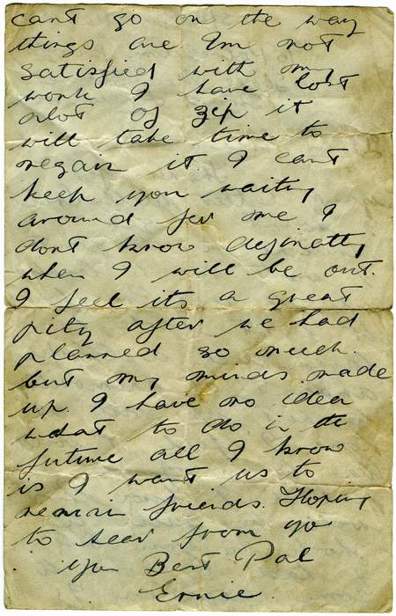 cant go on the way
things are Im not
satisfied with my
work I have lost
alot of zip it
will take time to
regain it I cant
keep you waiting
around for me I
dont know definatly
when I will be out.
I feel its a great
pity after we had
planned so much.
but my minds made
up I have no idea
what to do in the
future all I know
is I want us to
remain friends. Hoping
to hear from you
your Best Pal
Ernie.